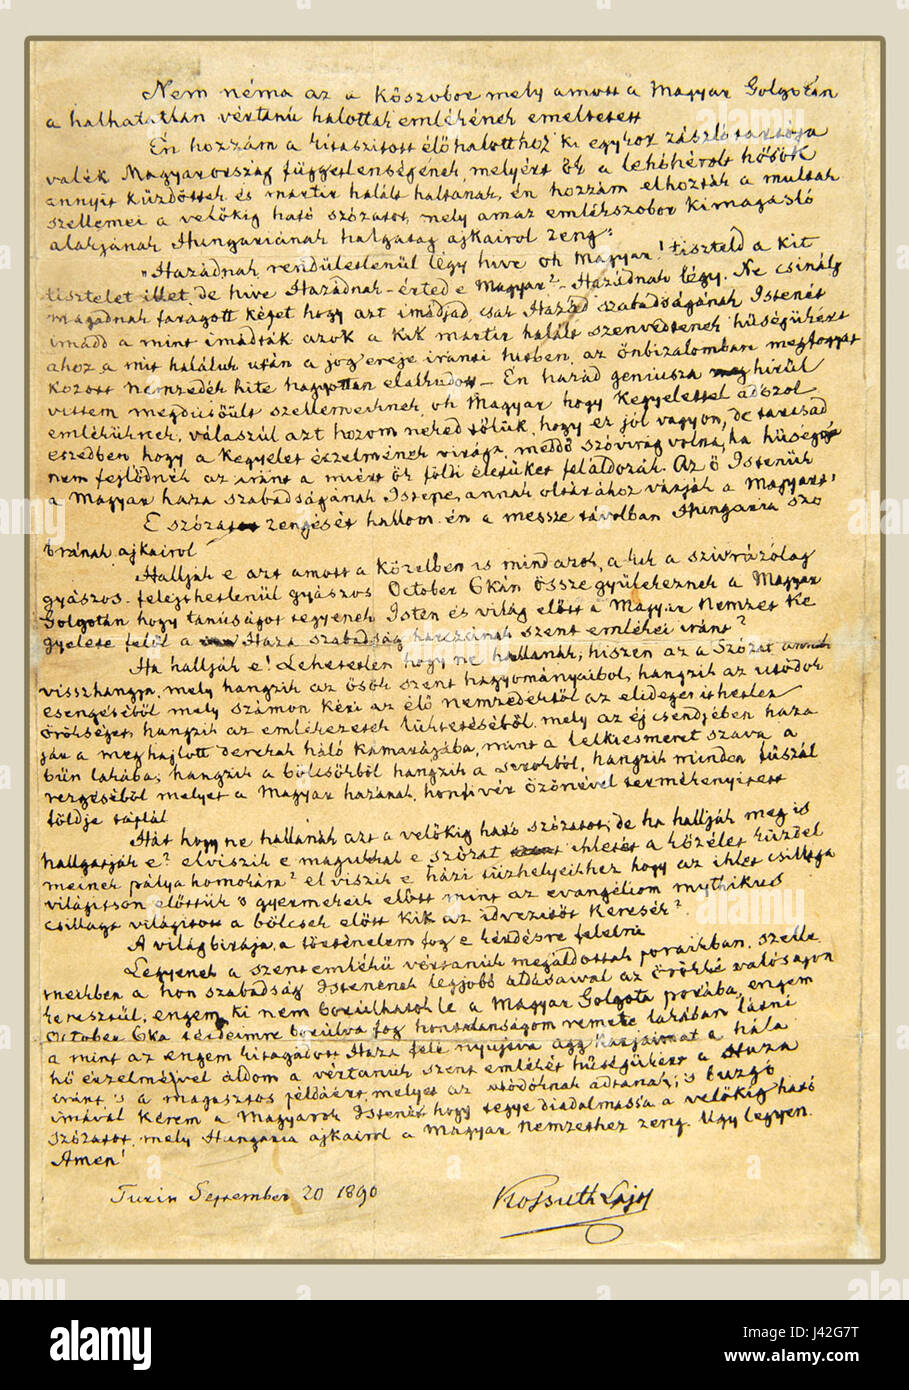 Nem néma az a kőszobor mely amott a Magyar Golgotán
a halhatatlan vértanú halottak emlékének emeltetett
Én hozzám a kitaszított élőhalotthoz ki egykor zászlótartója
valék Magyarország függetlenségének, melyért ők a lehóhérolt hősök
annyit küzdöttek és mártir halált haltanak, én hozzám elhozták a multak
szellemei a velőkig ható szózatot, mely amaz emlékszobor kimagasló
alakjának Hungariának halgatag ajkairol zeng:
„Hazádnak rendületlenül légy hive oh Magyar! tiszteld a kit
tisztelet illet, de hive Hazádnak – érted e Magyar? – Hazádnak légy. Ne csinálj
magadnak faragott képet hogy azt imádjad, csak Hazád szabadságának Istenét
imádd a mint imádták azok a kik martir halált szenvedtenek hűségükért
ahoz a mit haláluk után a jog ereje iránti hitben, az önbizalomban megfogyat
kozott nemzedék hite hagyottan elaludott – Én hazád geniusza hírül
vittem megdicsőült szellemeiknek, oh Magyar hogy kegyelettel adószol
emléküknek, válaszúl azt hozom neked tőlük, hogy ez jól vagyon, de tartsad
eszedben hogy a kegyelet érzelmének virága, meddő szóvirág volna, ha hűség
nem fejlődnék az iránt a miért ők földi életüket feláldozák. Az ő Istenük
a Magyar haza szabadságának Istene, annak oltárához várják a Magyart"
E szózat zengését hallom én a messze távolban Hungaria szo
bránák ajkairol
Hallják e azt amott a közelben is mindazok, a kik a szivrázólag
gyászos, felejthetlenül gyászos October 6kán össze gyülekeznek a Magyar
Golgotán hogy tanúságot tegyenek Isten és világ előtt a Magyar Nemzet ke
gyelete felől a Haza szabadság harczainak szent emlékei iránt?
Ha hallják e! Lehetetlen hogy ne hallanák; hiszen az a Szózat annak
visszhangja, mely hangzik az ősök szent hagyományaiból, hangzik az utódok
esengéséből mely számon kéri az élő nemzedéktől az elidegeníthetlen
örökséget, hangzik az emlékezetek lüktetéséből, mely az éj csendjében haza
jár a meghajlott derekak háló kamarájába, mint a lelkiesmeret szava a
bűn lakába; hangzik a bölcsőkből hangzik a sirokból, hangzik minden fűszál
rezgéséből melyet a Magyar hazának, honfi vér özönével termékenyitett
földje táplál
Hát hogy ne hallanák azt a velőkig ható szózatot; de ha hallják meg is
hallgatják e? elviszik e magukkal e szózat ihletét a közélet küzdel
meinek pálya homokára? el viszik e házi tűzhelyeikhez hogy az ihlet csillaga
világitson előttük 's gyermekeik előtt mint az evangéliom mythikus
csillaga világitott a bölcsek előtt kik az idvezitőt keresék?
A világ birája, a történelem fog e kérdésre felelni
Legyenek a szent emlékű vértanúk megáldottak poraikban, szelle
meikben a hon szabadság Istenének legjobb áldásaival az örökké valóságon
keresztűl, engem, ki nem borúlhatok le a Magyar Golgota porába, engem
October 6ka térdeimre borúlva fog hontalanságom remete lakában látni
a mint az engem kitagadott Haza felé nyujtva agg karjaimat a hála
hő érzelmével áldom a vértanúk szent emlékét hűségükért a Haza
iránt 's a magasztos példáért, melyet az utódoknak adtanak; 's buzgó
imával kérem a Magyarok Istenét, hogy tegye diadalmassá a velőkig ható
szózatot, mely Hungaria ajkairol a Magyar Nemzethez zeng. Úgy legyen.
Amen!
Turin September 20 1890 Kossuth Lajos
alamy
Image ID: J42G7T
www.alamy.com